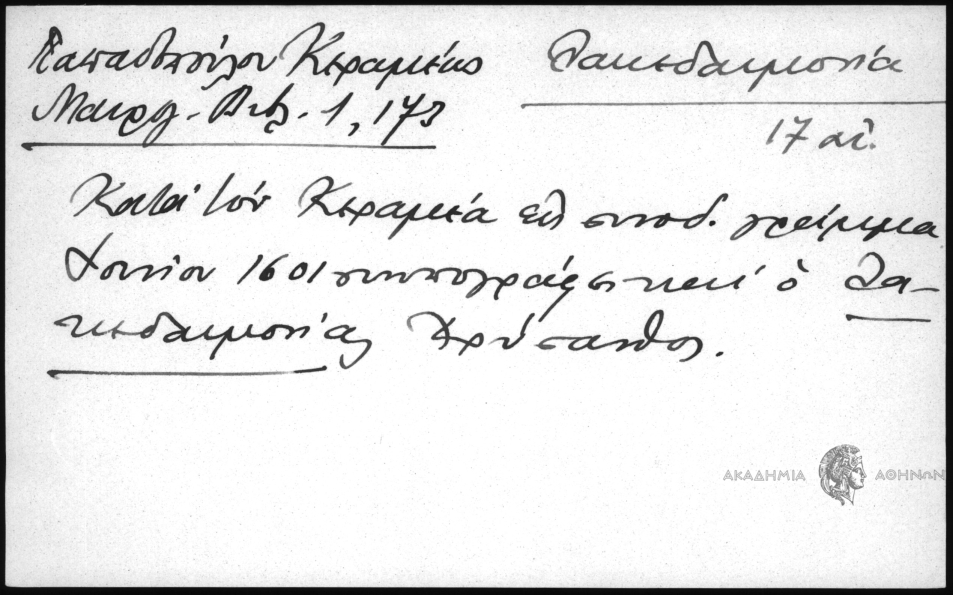 Παπαδοπούλου Κεραμέως
Μαυρογ. Βιβ. 1, 173
Λακεδαιμονία
17 αἰ.
Κατὰ τὸν Κεραμέα εἰς συνοδ. γράμμα
Ἰουνίου 1601 συνυπογράφει καὶ ὁ Λα-
κεδαιμονίας Χρύσανθος.
ΑΚΑΔΗΜΙΑ ΑΘΗΝΩΝ